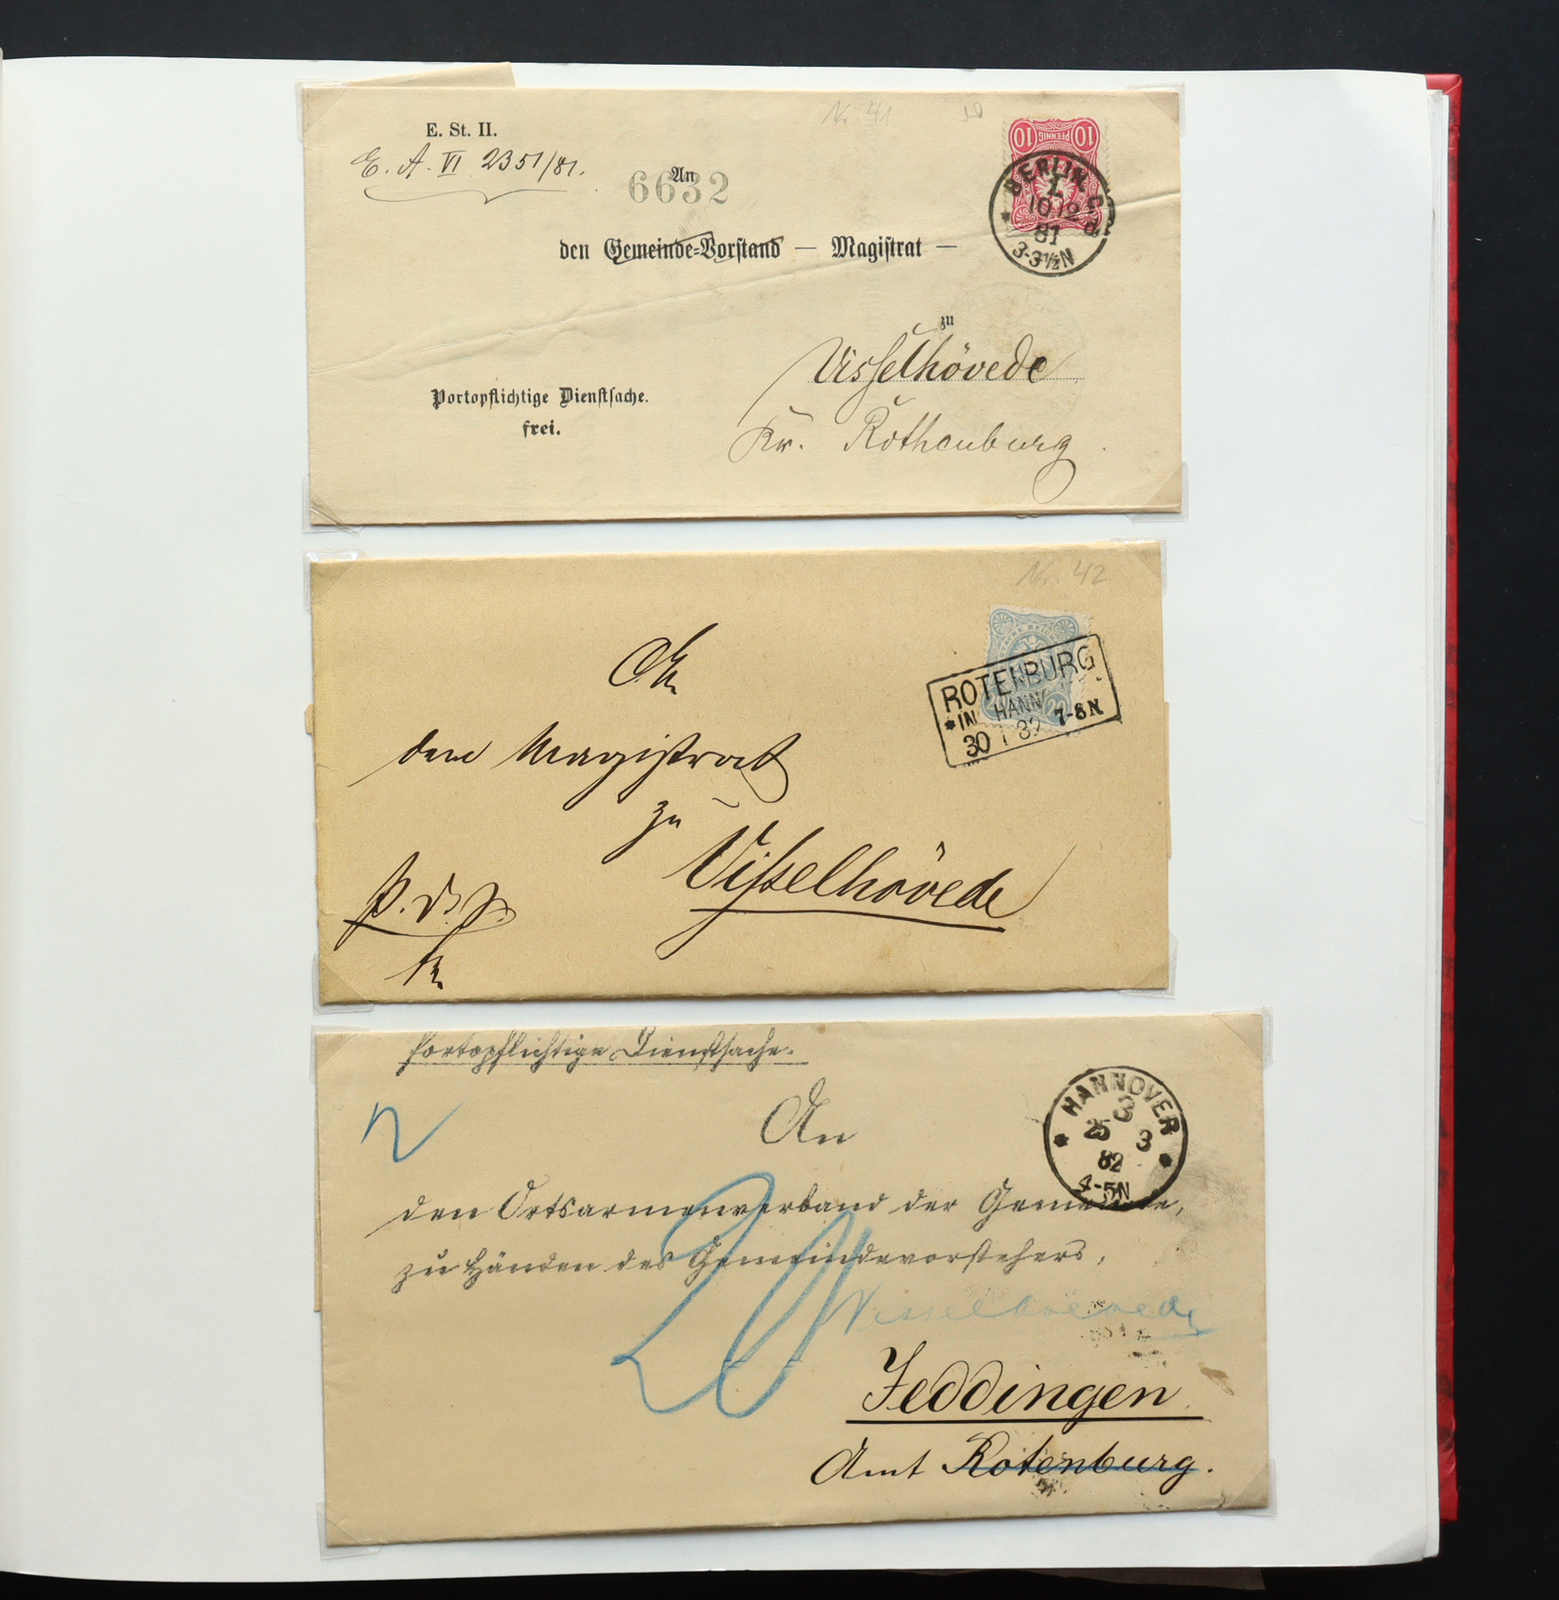 E. St. II.
E. A. VI 2351/81.
Nr. 41
10 PFENNIG 10
An
6632
BERLIN, C.
10 12
81
3-3½N
den Gemeinde-Vorstand — Magistrat —
zu
Visselhövede
Kr. Rothenburg
Portopflichtige Dienstsache.
frei.
Nr. 42
ROTENBURG
*IN HANN
30 1 82 7-8N
An
den Magistrat
zu
Visselhövede
Portopflichtige Dienstsache.
HANNOVER
3
25 3
82
4-5N
An
den Ortsarmenverband der Gemeinde,
zu Händen des Gemeindevorstehers,
20
Visselhoevede
Jeddingen
Amt Rotenburg.